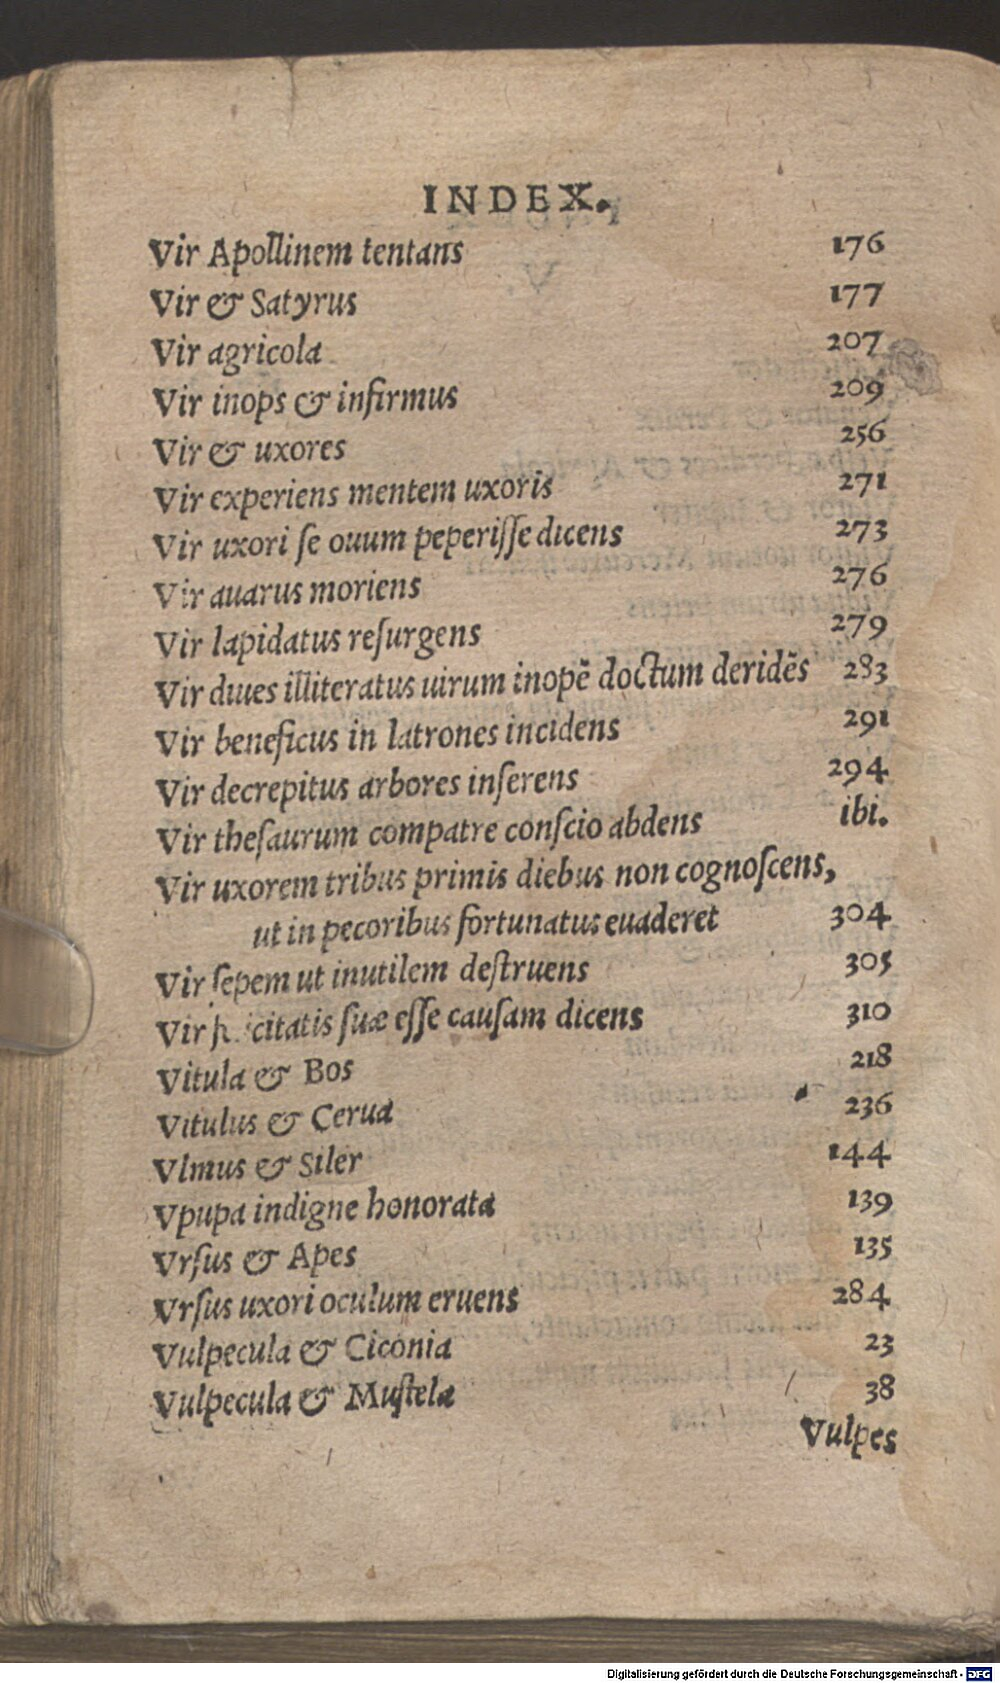 INDEX.
Vir Apollinem tentans 176
Vir & Satyrus 177
Vir agricola 207
Vir inops & infirmus 209
Vir & uxores 256
Vir experiens mentem uxoris 271
Vir uxori ſe ouum peperiſſe dicens 273
Vir auarus moriens 276
Vir lapidatus reſurgens 279
Vir diues illiteratus uirum inopē doctum deridēs 283
Vir beneficus in latrones incidens 291
Vir decrepitus arbores inſerens 294
Vir theſaurum compatre conſcio abdens ibi.
Vir uxorem tribus primis diebus non cognoſcens,
ut in pecoribus fortunatus euaderet 304
Vir ſepem ut inutilem deſtruens 305
Vir ſuæ eſſe cauſam dicens 310
Vitula & Bos 218
Vitulus & Cerua 236
Vlmus & Siler 144
Vpupa indigne honorata 139
Vrſus & Apes 135
Vrſus uxori oculum eruens 284
Vulpecula & Ciconia 23
Vulpecula & Muſtela 38
Vulpes
Digitalisierung gefördert durch die Deutsche Forschungsgemeinschaft - DFG